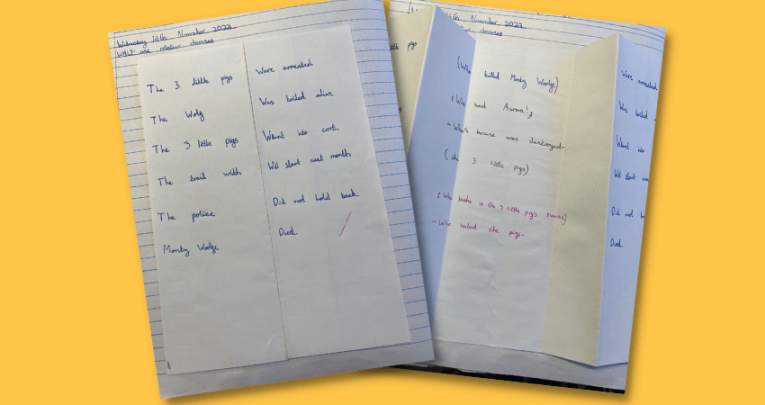 Wednesday 16th November 2022
WALT: use relative clauses
The 3 little pigs were arrested
The Wolf Was boiled alive
The 3 little pigs Whent into cort.
The trail with Will start next month
The police Did not hold back.
Mordy Wolfe Died.
16th November 2022
relative clauses
little pigs
(Who killed Mordy Wolfe)
, Who had Asma,
- Who's house were destroyed-
( the 3 little pigs)
(Who broke in the 3 little pigs house)
- Who the pigs-
Were arrested
Was boiled
Whent into
Will start
Did not
Died